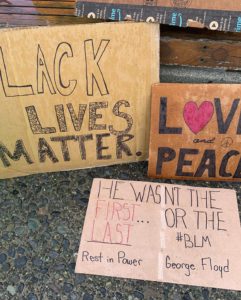 LACK
LIVES
MATTER.
LOVE
and
PEACE
HE WASNT THE
FIRST... OR THE
LAST #BLM
Rest in Power George Floyd